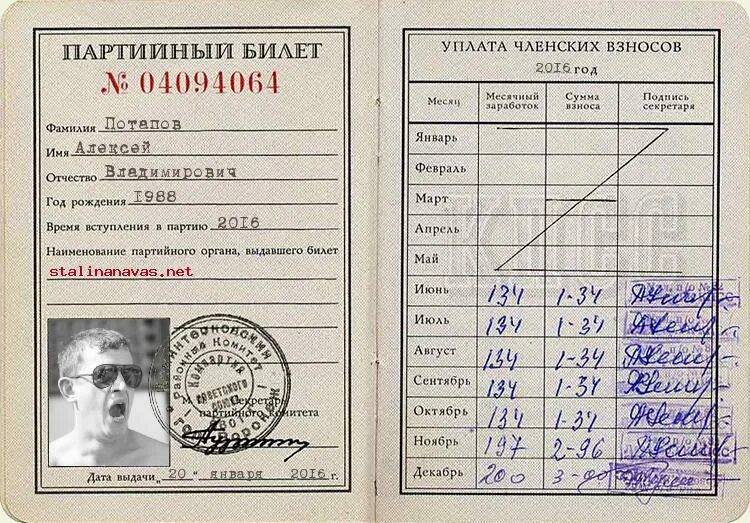 ПАРТИЙНЫЙ БИЛЕТ
№ 04094064
Фамилия Потапов
Имя Алексей
Отчество Владимирович
Год рождения 1988
Время вступления в партию 2016
Наименование партийного органа, выдавшего билет
stalinanavas.net
Районный Комитет
Компартия
Советского
Союза
М Секретарь
партийного комитета
Дата выдачи „20" января 2016 г.
УПЛАТА ЧЛЕНСКИХ ВЗНОСОВ
2016 год
Месяц Месячный заработок Сумма взноса Подпись секретаря
Январь
Февраль
Март
Апрель
Май
КПСС
Июнь 134 1-34
Июль 134 1-34
Август 134 1-34
Сентябрь 134 1-34
Октябрь 134 1-34
Ноябрь 197 2-96
Декабрь 200 3-00